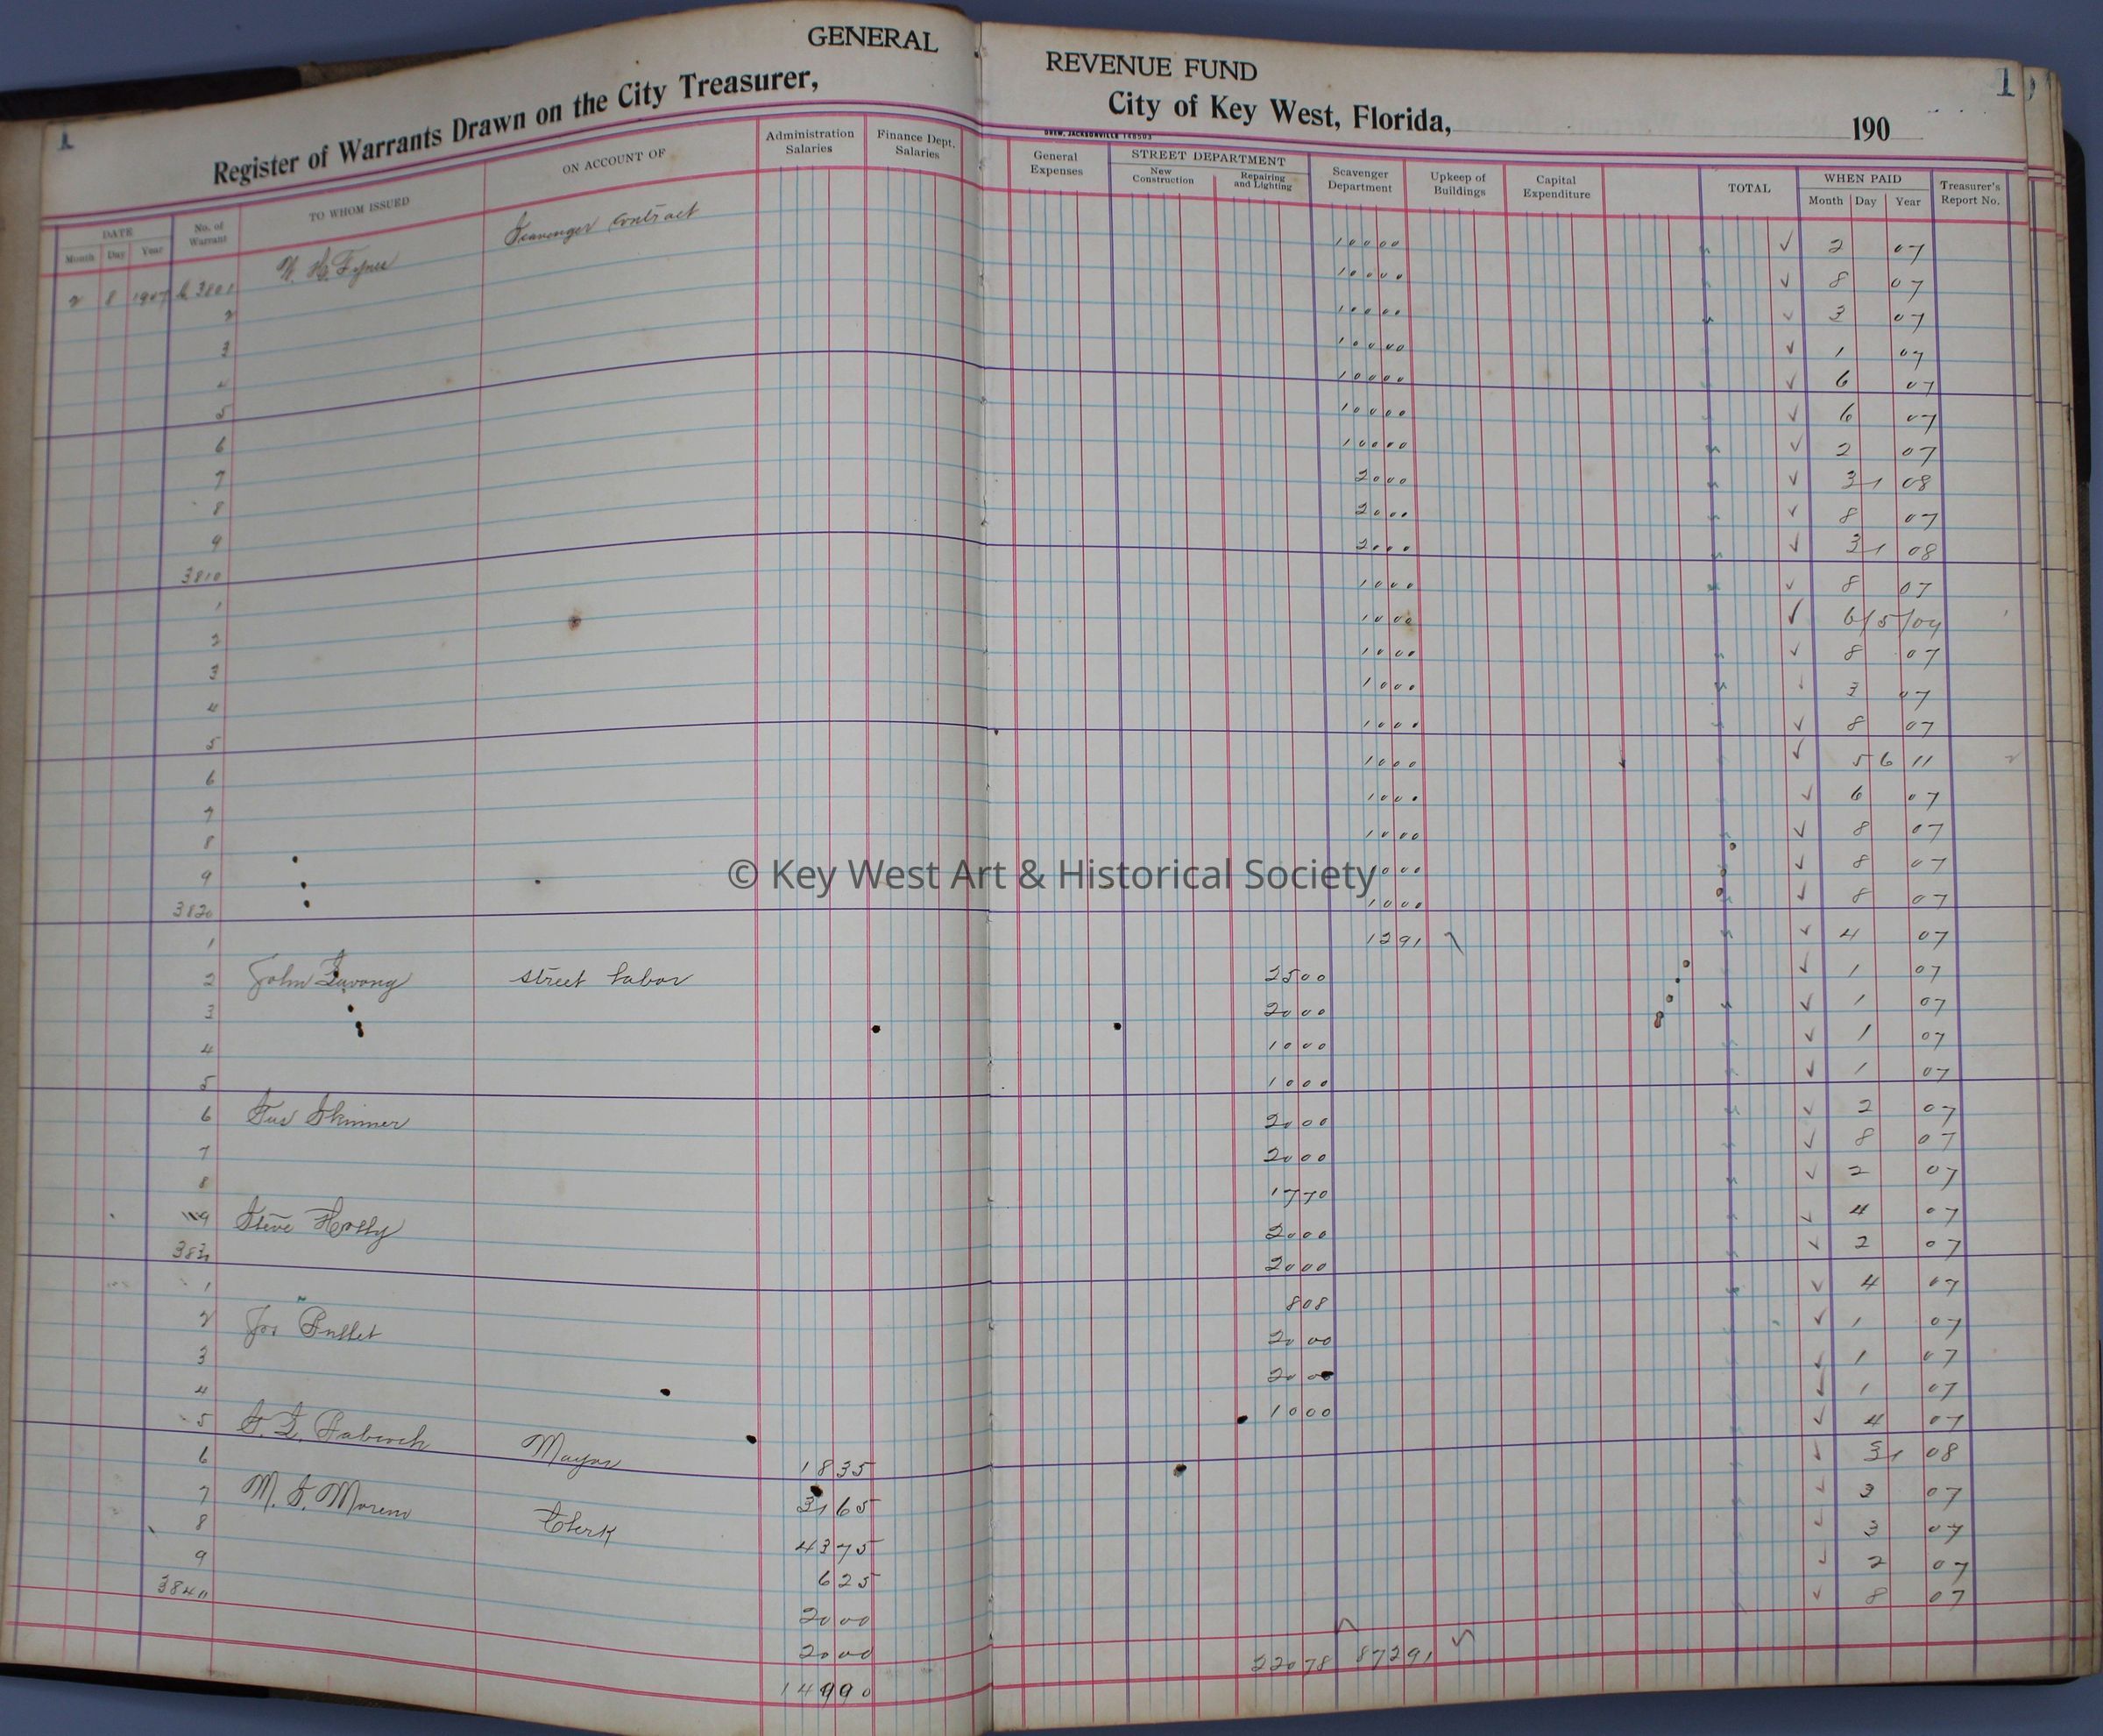 GENERAL REVENUE FUND
1 Register of Warrants Drawn on the City Treasurer, City of Key West, Florida, 190 1
DREW, JACKSONVILLE 148503
DATE No. of Warrant TO WHOM ISSUED ON ACCOUNT OF Administration Salaries Finance Dept. Salaries General Expenses STREET DEPARTMENT Scavenger Department Upkeep of Buildings Capital Expenditure TOTAL WHEN PAID Treasurer's Report No.
Month Day Year New Construction Repairing and Lighting Month Day Year
2 8 1907 3801 Scavenger Contract 10000 2 07
2 10000 8 07
3 10000 3 07
4 10000 1 07
5 10000 6 07
6 10000 6 07
7 10000 2 07
8 2000 31 08
9 2000 8 07
3810 2000 31 08
1 1000 8 07
2 1000 6/5/09
3 1000 8 07
4 1000 3 07
5 1000 8 07
6 1000 5 6 11
7 1000 6 07
8 1000 8 07
9 1000 8 07
3820 1000 8 07
1 1291 4 07
2 John street labor 2500 1 07
3 2000 1 07
4 1000 1 07
5 1000 1 07
6 Gus Skinner 2000 2 07
7 2000 8 07
8 1770 2 07
9 Steve 2000 4 07
383 2000 2 07
1 808 4 07
2 Jos 2000 1 07
3 2000 1 07
4 1000 1 07
5 Babcock Mayor 1835 4 07
6 3165 31 08
7 M. Moreno Clerk 4375 3 07
8 625 3 07
9 2000 2 07
3840 2000 8 07
14990 22078 87291
© Key West Art & Historical Society